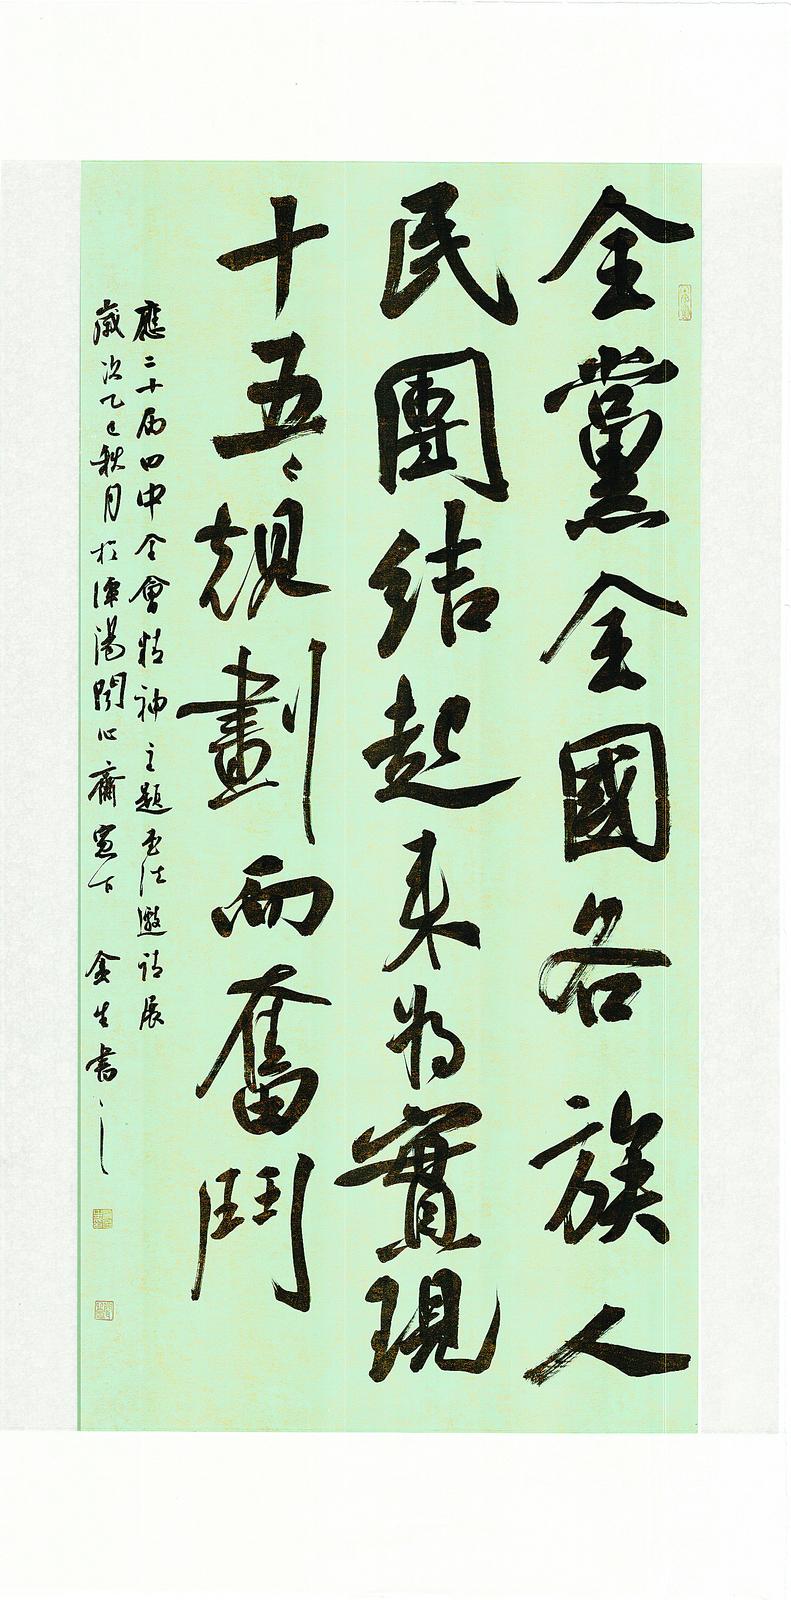 全黨全國各族人
民團結起來為實現
十五五規劃而奮鬥
應二十屆四中全會精神主題書法邀請展
歲次乙巳秋月於潭陽閒心齋窗下 金生書